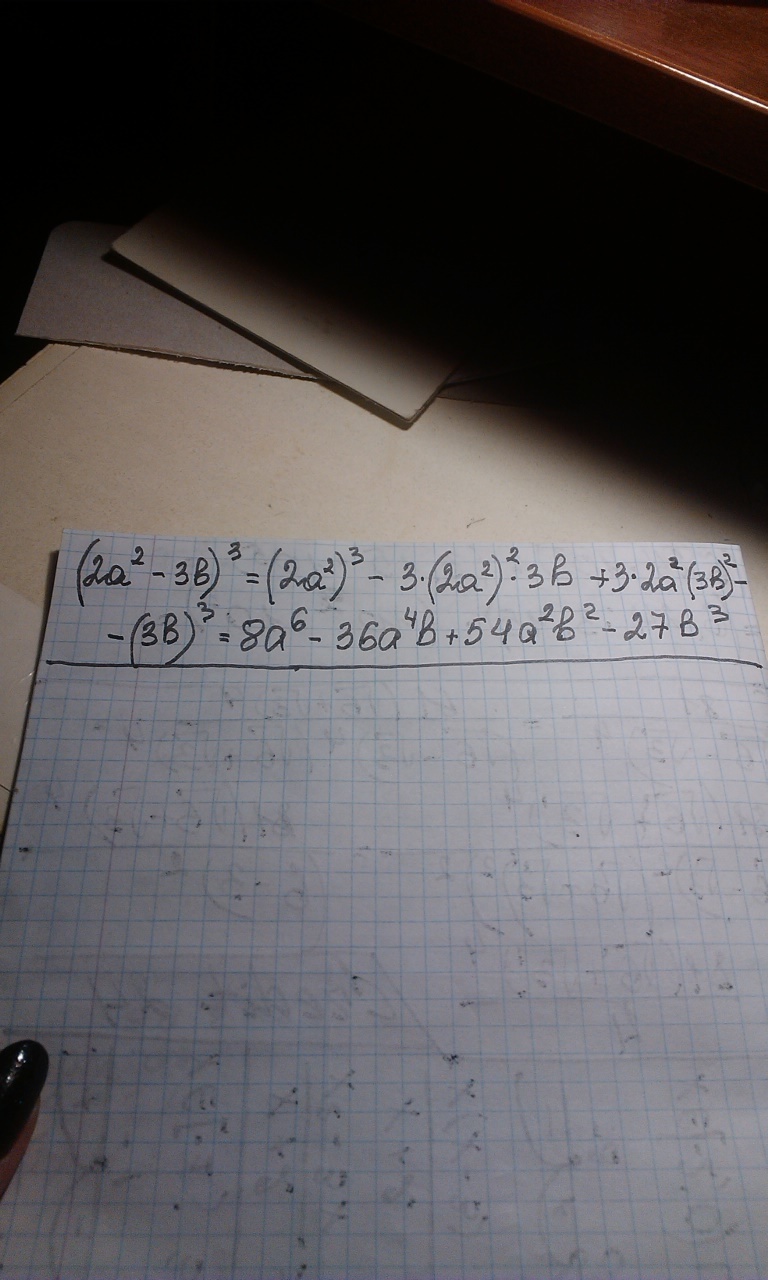 (2a² - 3b)³ = (2a²)³ - 3·(2a²)²·3b + 3·2a²(3b)² -
- (3b)³ = 8a⁶ - 36a⁴b + 54a²b² - 27b³